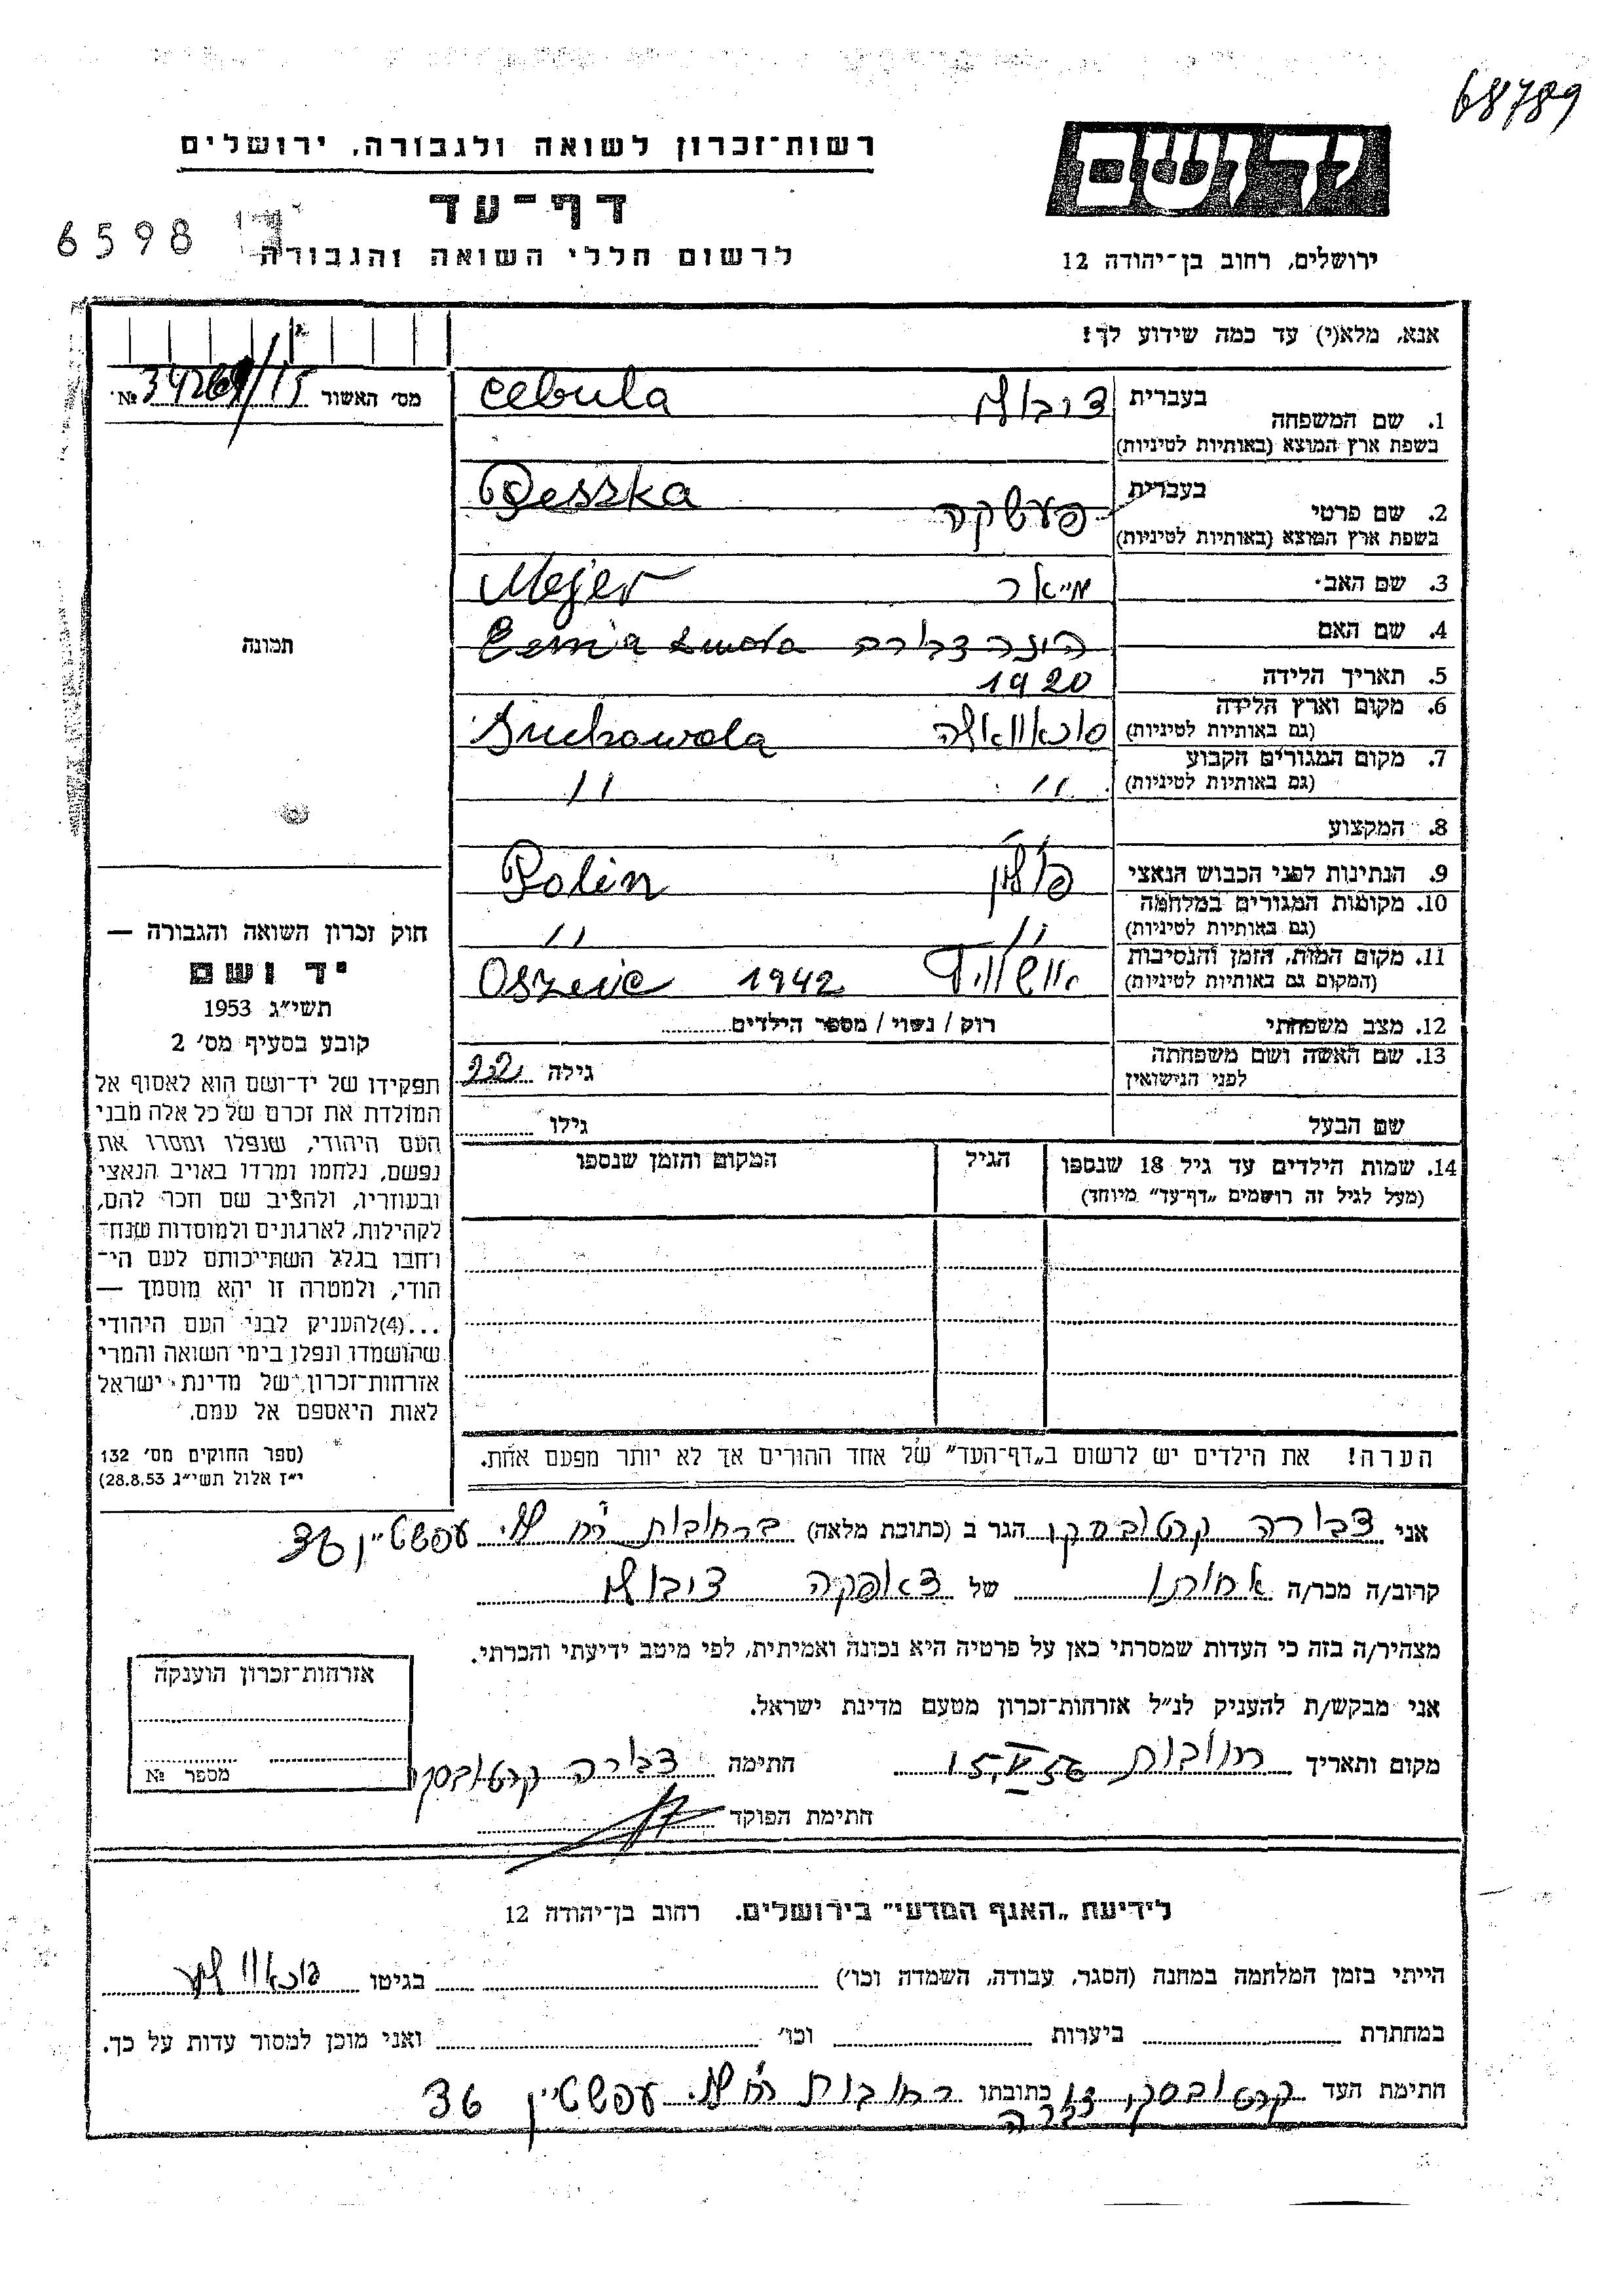 68789
רשות־זכרון לשואה ולגבורה, ירושלים
יד ושם
דף־עד
6598
לרשום חללי השואה והגבורה
ירושלים, רחוב בן־יהודה 12
אנא, מלא(י) עד כמה שידוע לך!
מס׳ האשור № 34269/15
1. שם המשפחה
בעברית
Cebula
בשפת ארץ המוצא (באותיות לטיניות)
2. שם פרטי
בעברית פעשקה
Peszka
בשפת ארץ המוצא (באותיות לטיניות)
3. שם האב מייאר Mejer
4. שם האם
5. תאריך הלידה 1920
6. מקום וארץ הלידה
(גם באותיות לטיניות)
סוכאוואלה Suchowola
7. מקום המגורים הקבוע
(גם באותיות לטיניות)
" "
8. המקצוע
9. הנתינות לפני הכבוש הנאצי פולין Polin
10. מקומות המגורים במלחמה
(גם באותיות לטיניות)
" "
11. מקום המות, הזמן והנסיבות
(המקום גם באותיות לטיניות)
1942
12. מצב משפחתי רוק / נשוי / מספר הילדים
13. שם האשה ושם משפחתה
לפני הנישואין
גילה 22
שם הבעל גילו
14. שמות הילדים עד גיל 18 שנספו
(מעל לגיל זה רושמים „דף־עד״ מיוחד)
הגיל
המקום והזמן שנספו
הערה! את הילדים יש לרשום ב„דף־העד״ של אחד ההורים אך לא יותר מפעם אחת.
תמונה
חוק זכרון השואה והגבורה —
יד ושם
תשי״ג 1953
קובע בסעיף מס׳ 2
תפקידו של יד־ושם הוא לאסוף אל
המולדת את זכרם של כל אלה מבני
העם היהודי, שנפלו ומסרו את
נפשם, נלחמו ומרדו באויב הנאצי
ובעוזריו, ולהציב שם וזכר להם,
לקהילות, לארגונים ולמוסדות שנח־
רחבו בגלל השתייכותם לעם הי־
הודי, ולמטרה זו יהא מוסמך —
...(4)להעניק לבני העם היהודי
שהושמדו ונפלו בימי השואה והמרי
אזרחות־זכרון של מדינת ישראל
לאות היאספם אל עמם.
(ספר החוקים מס׳ 132
י״ז אלול תשי״ג 28.8.53)
אני דבורה קרטובסקי הגר ב (כתובת מלאה) ברחובות עפשטיין 36
קרוב/ה מכר/ה אחותו של ציבולה
מצהיר/ה בזה כי העדות שמסרתי כאן על פרטיה היא נכונה ואמיתית, לפי מיטב ידיעתי והכרתי.
אני מבקש/ת להעניק לנ״ל אזרחות־זכרון מטעם מדינת ישראל.
מקום ותאריך רחובות 15.V.56 חתימה דבורה קרטובסקי
חתימת הפוקד
אזרחות־זכרון הוענקה
מספר №
לידיעת „האגף המדעי״ בירושלים. רחוב בן־יהודה 12
הייתי בזמן המלחמה במחנה (הסגר, עבודה, השמדה וכו׳) בגיטו
במחתרת ביערות וכו׳ ואני מוכן למסור עדות על כך.
חתימת העד קרטובסקי דבורה כתובתו רחובות עפשטיין 36